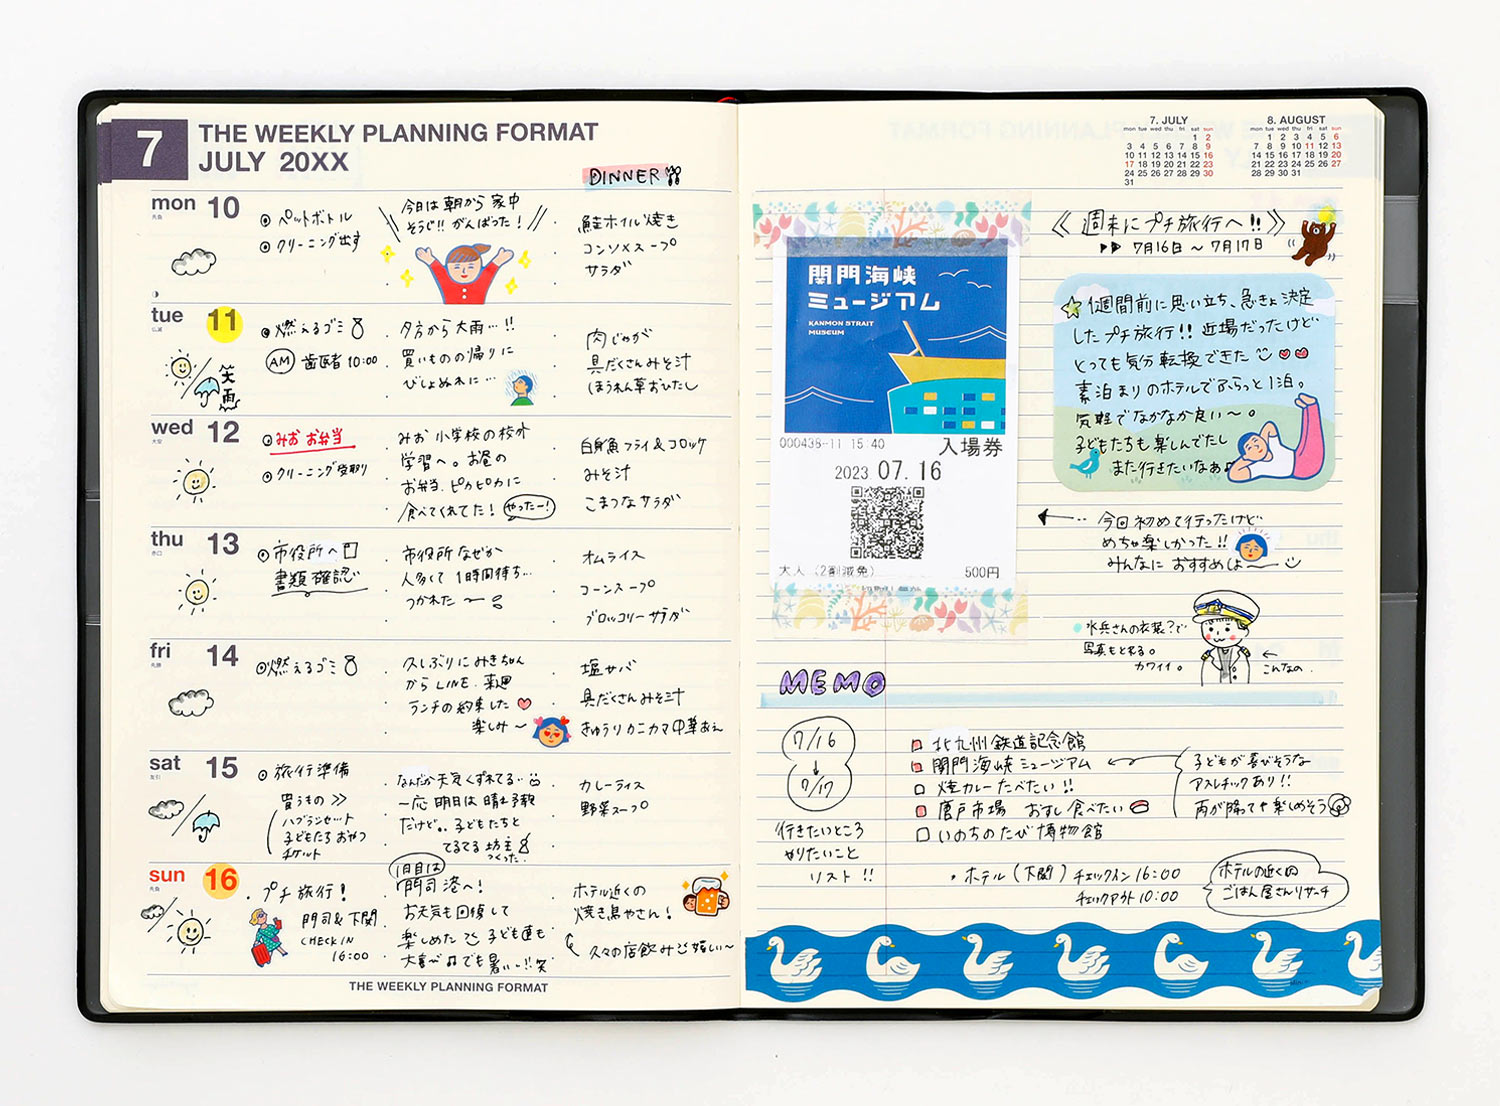 7
THE WEEKLY PLANNING FORMAT
JULY 20XX
DINNER
mon 10
先負
ペットボトル
クリーニング出す
今日は朝から家中
そうじ!! がんばった!
鮭ホイル焼き
コンソメスープ
サラダ
tue 11
仏滅
燃えるゴミ
AM 歯医者 10:00
笑
雨
夕方から大雨…!!
買いものの帰りに
びしょぬれに…
肉じゃが
具だくさんみそ汁
ほうれん草おひたし
wed 12
大安
みお お弁当
クリーニング受取り
みお 小学校の校外
学習へ。お昼の
お弁当、ピカピカに
食べてくれてた! やったー!
白身魚フライ&コロッケ
みそ汁
こまつなサラダ
thu 13
赤口
市役所へ
書類確認
市役所なぜか
人多くて 1時間待ち…
つかれた〜
オムライス
コーンスープ
ブロッコリーサラダ
fri 14
先勝
燃えるゴミ
久しぶりにみきちゃん
からLINE. 来週
ランチの約束した
楽しみ〜
塩サバ
具だくさんみそ汁
きゅうりカニカマ中華あえ
sat 15
友引
旅行準備
買うもの >>
ハブラシセット
子どもたちおやつ
チケット
なんだか天気くずれてる…
一応明日は晴れ予報
だけど.. 子どもたちと
てるてる坊主
つくった.
カレーライス
野菜スープ
sun 16
先負
プチ旅行!
門司&下関
CHECK IN
16:00
1日目は
門司港へ!
お天気も回復して
楽しめた 子ども達も
大喜び でも暑い〜!!笑
ホテル近くの
焼き鳥やさん!
久々の店飲み 嬉しい〜
THE WEEKLY PLANNING FORMAT
7. JULY
mon tue wed thu fri sat sun
1 2
3 4 5 6 7 8 9
10 11 12 13 14 15 16
17 18 19 20 21 22 23
24 25 26 27 28 29 30
31
8. AUGUST
mon tue wed thu fri sat sun
1 2 3 4 5 6
7 8 9 10 11 12 13
14 15 16 17 18 19 20
21 22 23 24 25 26 27
28 29 30 31
《週末にプチ旅行へ!!》
▶▶ 7月16日〜7月17日
関門海峡
ミュージアム
KANMON STRAIT
MUSEUM
000438-11 15:40
入場券
2023 07.16
大人 (2割減免) 500円
☆1週間前に思い立ち、急きょ決定
したプチ旅行!! 近場だったけど
とっても気分転換できた
素泊まりのホテルでふらっと1泊。
気軽でなかなか良い〜。
子どもたちも楽しんでたし
また行きたいなあ♪
今回初めて行ったけど
めちゃ楽しかった!!
みんなに おすすめしよ〜
水兵さんの衣装?で
写真もとれる。
カワイイ。
こんなの.
MEMO
7/16
↓
7/17
行きたいところ
やりたいこと
リスト!!
北九州鉄道記念館
関門海峡ミュージアム
焼カレーたべたい!!
唐戸市場 おすし食べたい
いのちのたび博物館
子どもが喜びそうな
アスレチックあり!!
雨が降っても楽しめそう
・ホテル(下関) チェックイン 16:00
チェックアウト 10:00
ホテルの近くの
ごはん屋さんリサーチ